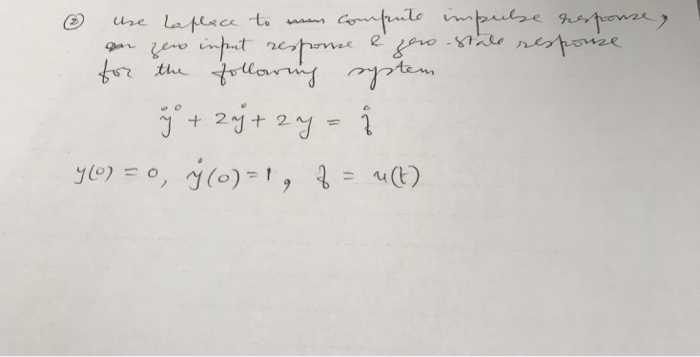 ② use Laplace to compute impulse response,
zero input response & zero-state response
for the following system
ÿ + 2ẏ + 2y = ḟ
y(0) = 0, ẏ(0) = 1, f = u(t)